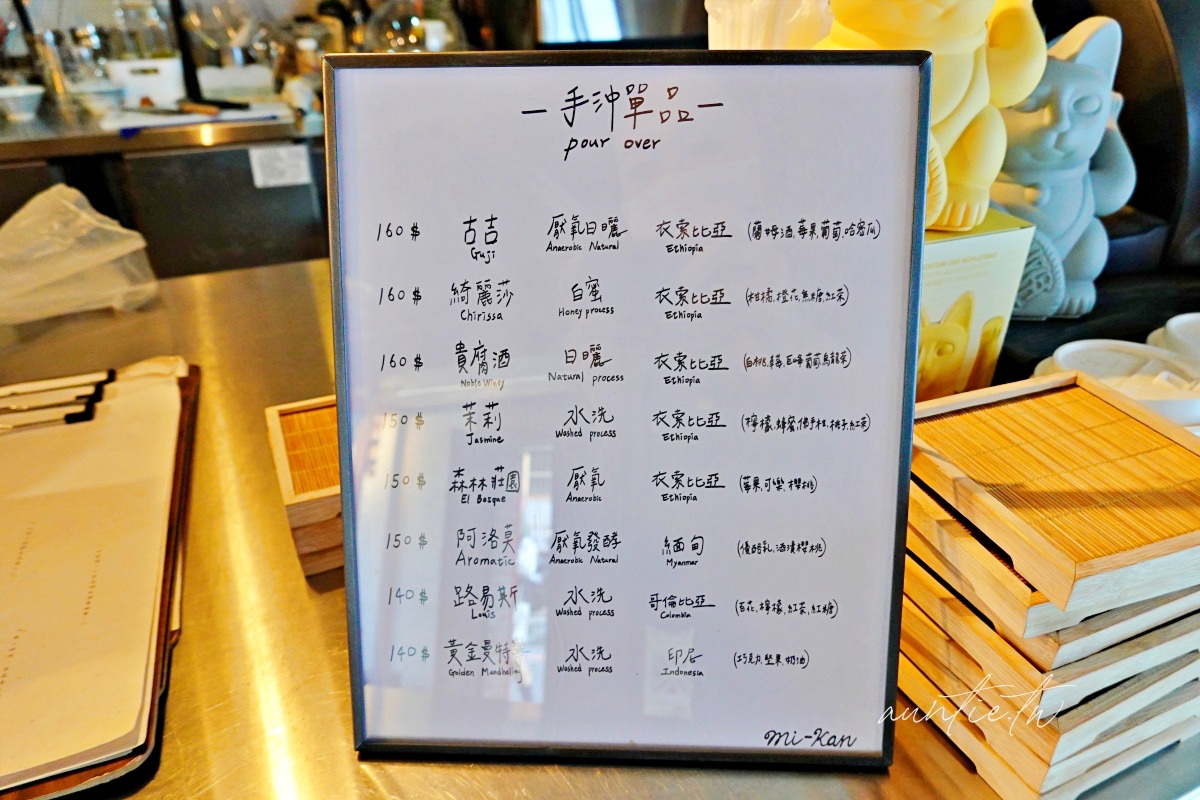 — 手沖單品 —
pour over
160 $ 古吉 厭氧日曬 衣索比亞 (蘭姆酒,莓果,葡萄,哈密瓜)
Guji Anaerobic Natural Ethiopia
160 $ 綺麗莎 白蜜 衣索比亞 (柑橘,橙花,焦糖,紅茶)
Chirissa Honey process Ethiopia
160 $ 貴腐酒 日曬 衣索比亞 (白桃,草莓,巨峰葡萄,烏龍茶)
Noble Winey Natural process Ethiopia
150 $ 茉莉 水洗 衣索比亞 (檸檬,蜂蜜,佛手柑,桃子,紅茶)
Jasmine Washed process Ethiopia
150 $ 森林莊園 厭氧 衣索比亞 (莓果,可樂,櫻桃)
El Bosque Anaerobic Ethiopia
150 $ 阿洛莫 厭氧發酵 緬甸 (優酪乳,酒漬櫻桃)
Aromatic Anaerobic Natural Myanmar
140 $ 路易斯 水洗 哥倫比亞 (百花,檸檬,紅茶,紅糖)
Louis Washed process Colombia
140 $ 黃金曼特寧 水洗 印尼 (巧克力,堅果,奶油)
Golden Mandheling Washed process Indonesia
mi-Kan
auntie.tw